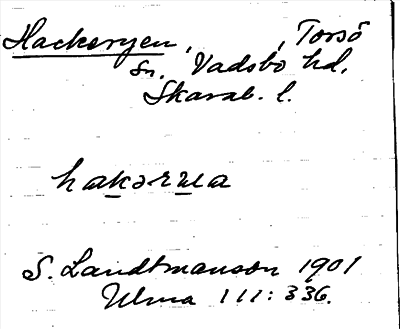 Hackeryen, , Torsö
sn. Vadsbo hd.
Skarab. l.
hakərɯa
S. Landtmanson 1901
Ulma 111: 336.